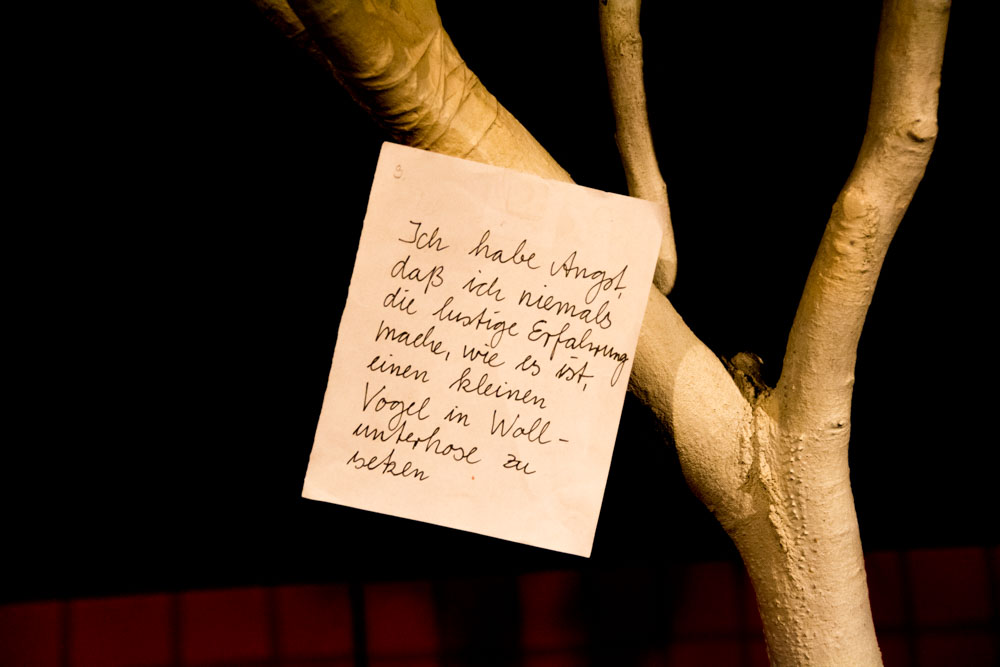 9.
Ich habe Angst,
daß ich niemals
die lustige Erfahrung
mache, wie es ist,
einen kleinen
Vogel in Woll-
unterhose zu
setzen